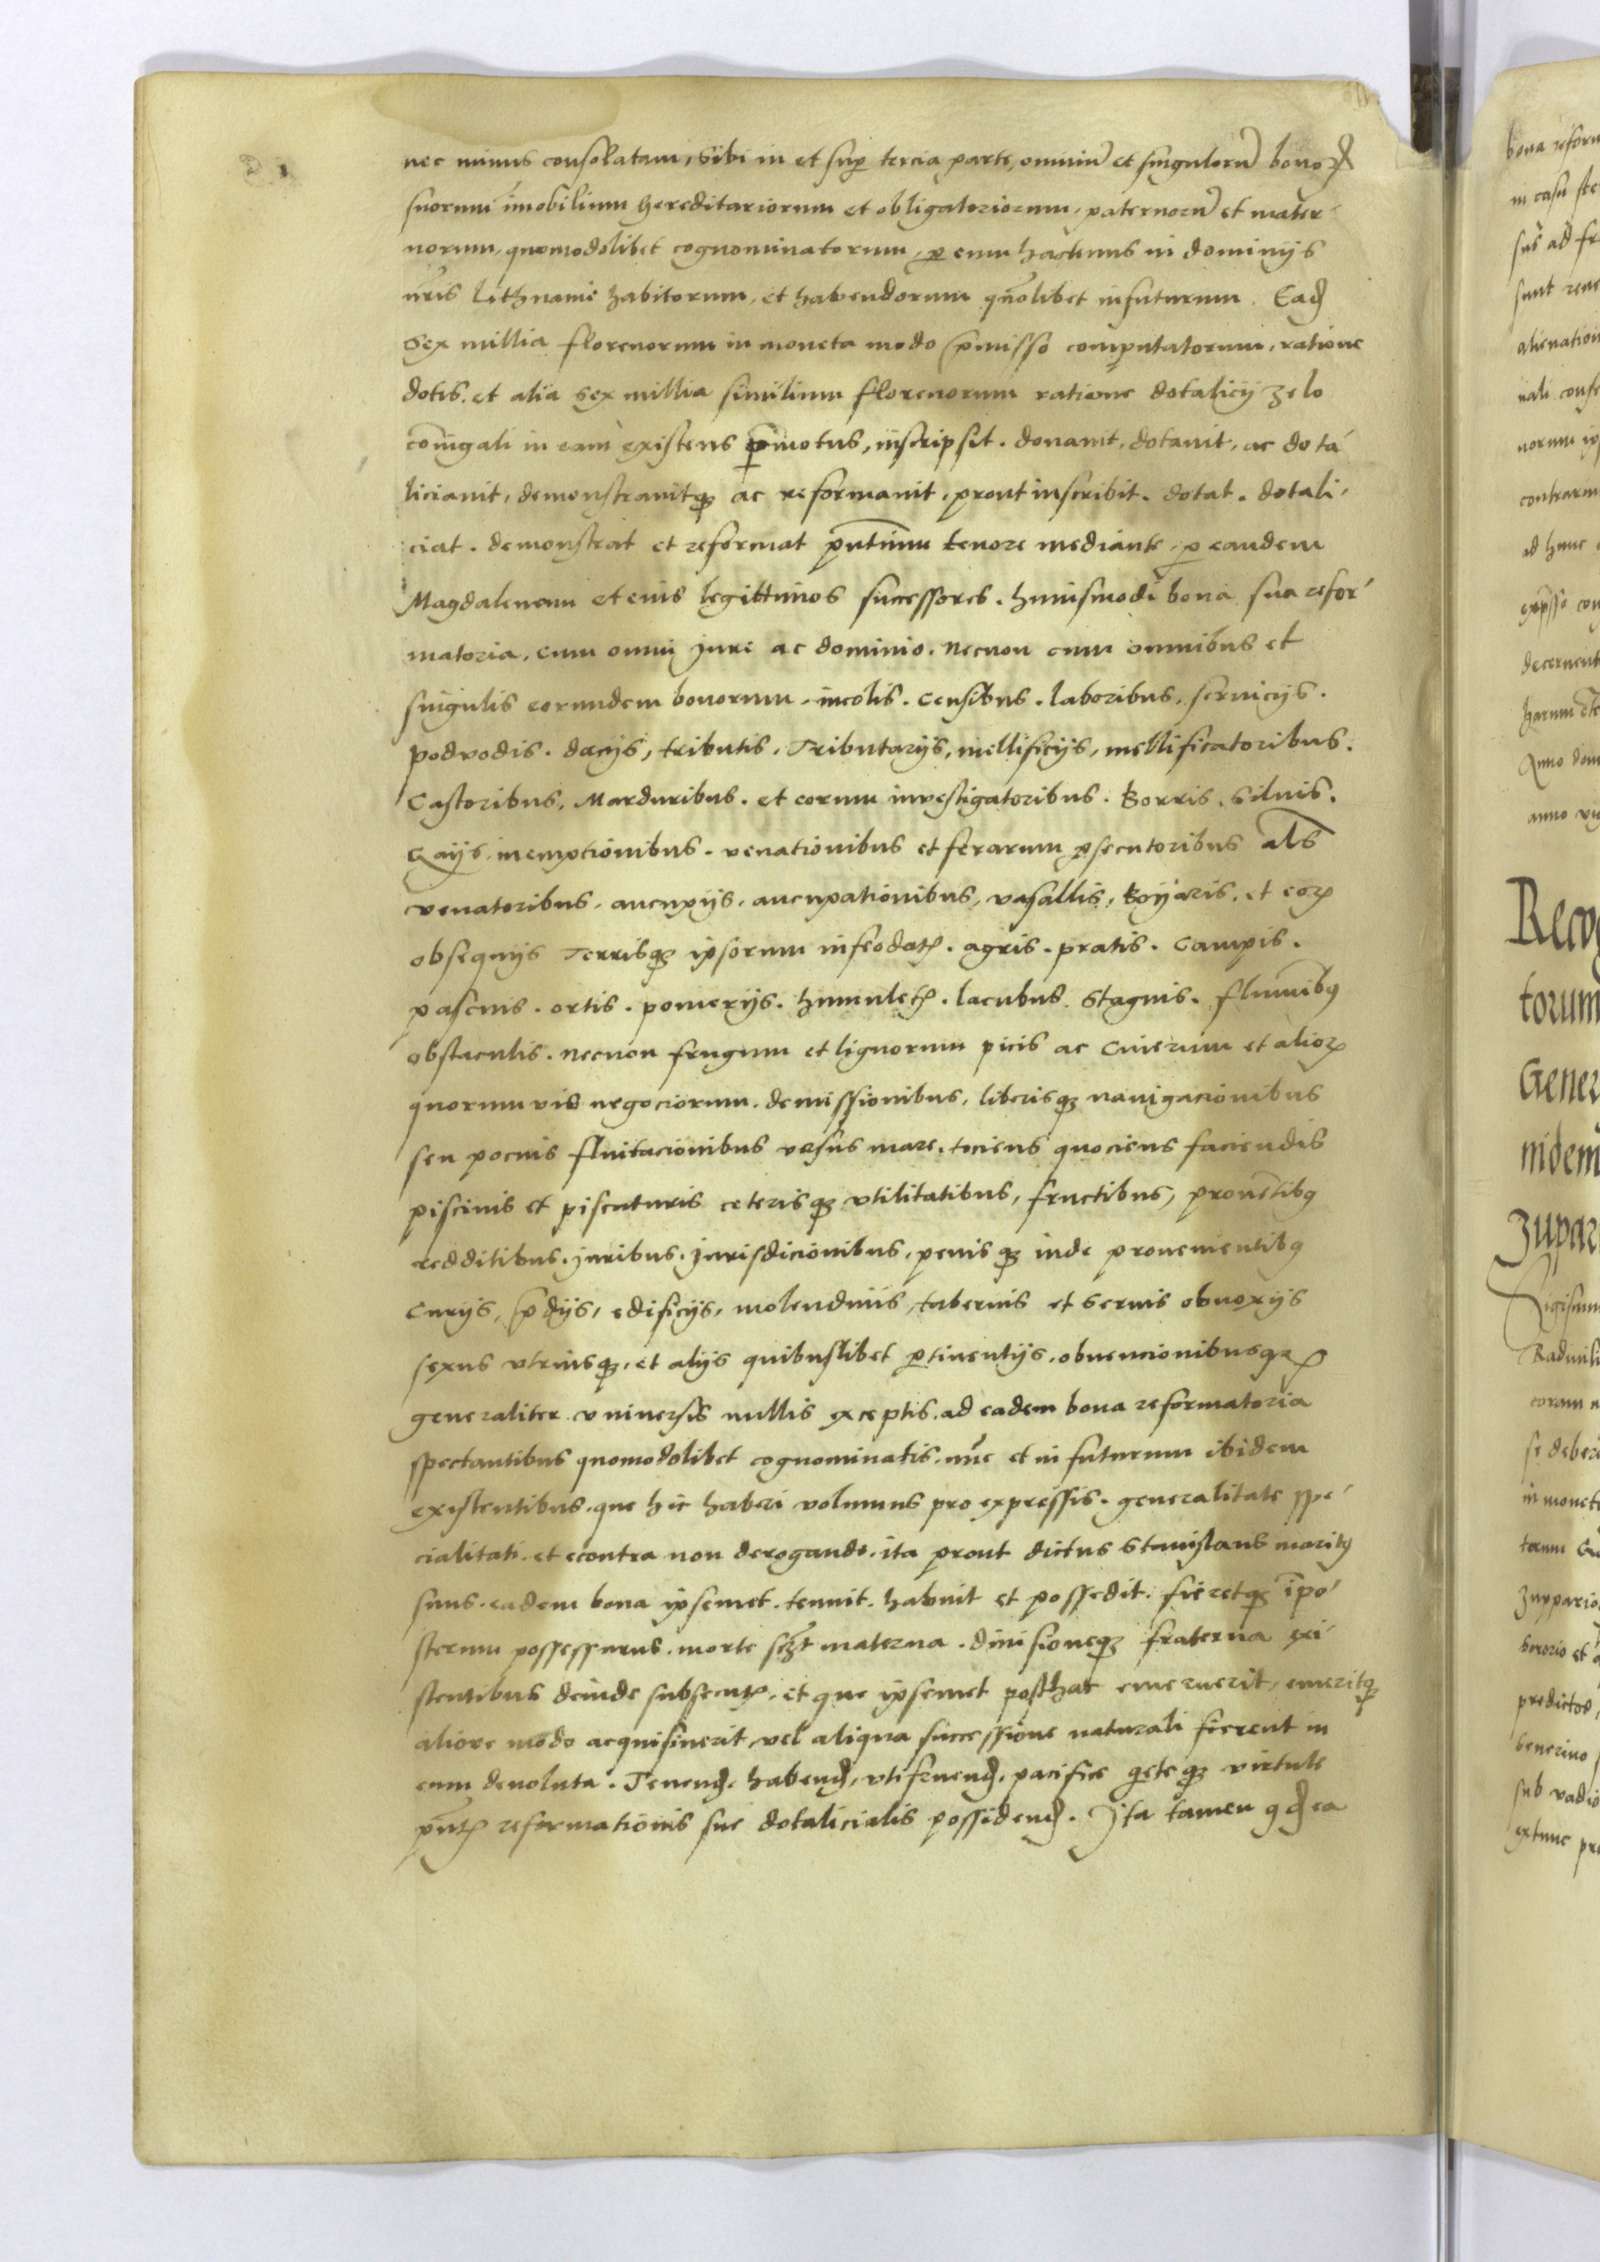 nec minus consolatam, Sibi in et sup tercia parte, omniu et singuloru bonoꝝ
suorum imobilium hereditariorum et obligatoriorum, paternoru et mater
norum, quomodolibet cognominatorum, ꝑ eum hactenus in dominijs
nris Lithuanie habitorum, et habendorum quolibet infuturum. Eaꝺ
Sex millia florenorum in moneta modo pmisso computatorum, ratione
dotis. et alia sex millia similium florenorum ratione dotalicij zelo
coniugali in eam existens pmotus, inscripsit. donauit, dotauit, ac dota
liciauit, demonstrauitqȝ ac reformauit. prout inscribit. dotat. dotali,
ciat. demonstrat et reformat pntium tenore mediante, ꝑ eandem
Magdalenam et eius legittimos successores. huiusmodi bona sua refor
matoria, cum omni jure ac dominio. necnon cum omnibus et
singulis eorundem bonorum, incolis. censibus. laboribus, seruicijs.
podvodis. dacijs, tributis. Tributarijs, mellificijs, mellificatoribus.
Castoribus, Marduribus. et eorum investigatoribus. Borris. siluis.
Gaijs. inemptionibus. venationibus et ferarum ꝑsecutoribus als
venatoribus. aucupijs. aucupationibus, vasallis, Boyaris. et eoꝝ
obsequijs Terrisqȝ ipsorum infeodatꝭ. agris. pratis. campis.
pascuis. ortis. pomerijs. humuletꝭ. lacubus. stagnis. fluminibꝰ
obstaculis. necnon frugum et lignorum picis ac cinerum et alioꝝ
quorumuis negociorum. demissionibus, liberisqȝ nauigacionibus
seu pocius fluitacionibus versus mare. tociens quociens faciendis
piscinis et piscaturis ceterisqȝ vtilitatibus, fructibus, prouentibꝰ
redditibus. juribus. jurisdicionibus, penisqȝ inde prouenientibꝰ
curijs, pdijs, edificijs, molendinis, tabernis et seruis obnoxijs
sexus vtriusqȝ, et alijs quibuslibet ꝑtinentijs. obuencionibusqꝫ
generaliter vniuersis nullis exceptis. ad eadem bona reformatoria
spectantibus quomodolibet cognominatis. nunc et in futurum ibidem
existentibus. que hic haberi volumus pro expressis. generalitate spe
cialitati. et econtra non derogando. ita prout dictus Stanislaus maritꝰ
suus. eadem bona ipsemet. tenuit. habuit et possedit. fieretqȝ ipo
sterum possessurus. morte sczt materna. diuisioneqȝ fraterna exi
stentibus deinde subsecutꝭ. et que ipsemet posthac emeruerit, emeritqȝ
aliove modo acquisiuerit, vel aliqua successione naturali fierent in
eum deuoluta. Tenenꝺ. habenꝺ, vtifruenꝺ. pacifice qieteqȝ virtute
pntꝭ reformationis sue dotalicialis possidenꝺ. Ita tamen qꝺ ea